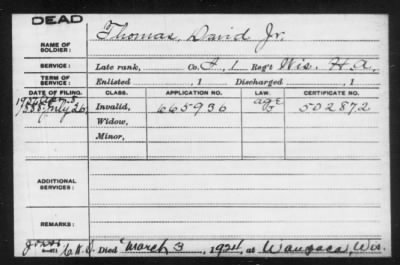 DEAD
NAME OF SOLDIER: Thomas, David Jr.
SERVICE: Late rank, Co. I, 1 Reg't Wis. H.A.
TERM OF SERVICE: Enlisted , 1 Discharged , 1
DATE OF FILING. CLASS. APPLICATION NO. LAW. CERTIFICATE NO.
July 26 Invalid, 665936 age 502872
Widow,
Minor,
ADDITIONAL SERVICES:
REMARKS:
Died March 3, 1924, at Waupaca, Wis.